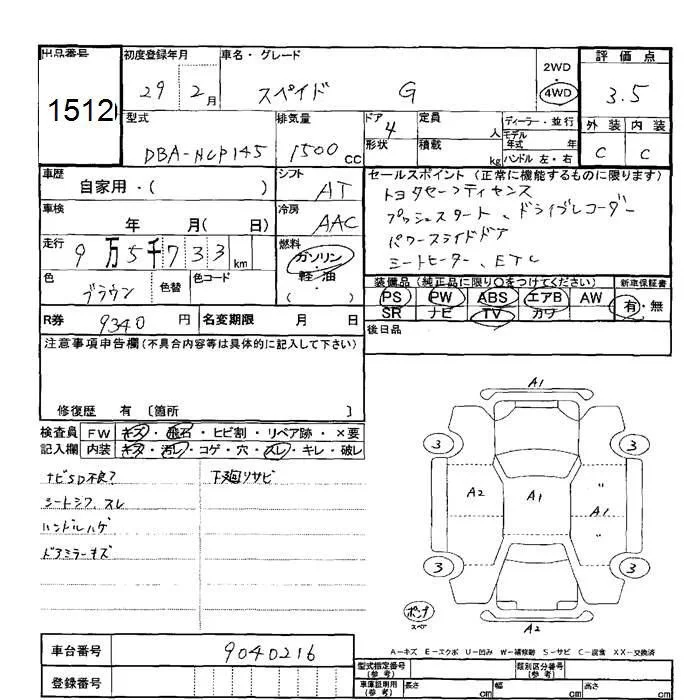 出品番号 初度登録年月 車名・グレード 2WD 評価点
1512 29 2月 スペイド G ・ 4WD 3.5
型式 排気量 ドア 4 定員 人 ディーラー・並行 外装 内装
DBA-NCP145 1500 CC 形状 積載 kg モデル年式 年 C C
ハンドル 左・右
車歴 自家用・( ) シフト AT セールスポイント (正常に機能するものに限ります)
車検 年 月( 日) 冷房 AAC トヨタセーフティセンス
プッシュスタート、ドライブレコーダー
走行 9万5千733km 燃料 ガソリン パワースライドドア
軽・油 シートヒーター、ETC
色 ブラウン 色替 色コード ・( )
装備品 (純正品に限り〇をつけてください) 新車保証書
PS PW ABS エアB AW 有・無
SR ナビ TV カワ
R券 9340 円 名変期限 月 日 後日品
注意事項申告欄 (不具合内容等は具体的に記入して下さい)
修復歴 有 〔箇所 〕
検査員 FW キズ・飛石・ヒビ割・リペア跡・×要
記入欄 内装 キズ・汚レ・コゲ・穴・スレ・キレ・破レ
ナビSD不良? 下廻リサビ
シートシワ、スレ
ハンドルハゲ
ドアミラーキズ
A1
3 3
A2 A1 〃
A1
〃
3 3
ポンプ
スペア
A2
A-キズ E-エクボ U-凹み W-補修跡 S-サビ C-腐食 XX-交換済
車台番号 9040216 型式指定番号(参考) 類別区分番号(参考)
登録番号 車庫証明用(参考) 長さ cm 幅 cm 高さ cm